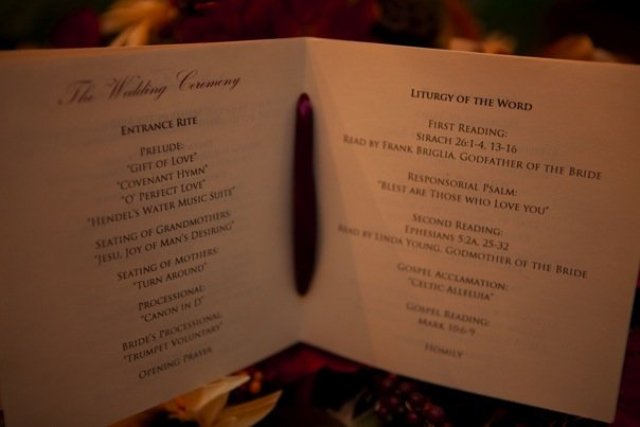 The Wedding Ceremony
Entrance Rite
Prelude:
"Gift of Love"
"Covenant Hymn"
"O' Perfect Love"
"Hendel's Water Music Suite"
Seating of Grandmothers:
"Jesu, Joy of Man's Desiring"
Seating of Mothers:
"Turn Around"
Processional:
"Canon in D"
Bride's Processional:
"Trumpet Voluntary"
Opening Prayer
Liturgy of the Word
First Reading:
Sirach 26:1-4, 13-16
Read by Frank Briglia, Godfather of the Bride
Responsorial Psalm:
"Blest are Those who Love you"
Second Reading:
Ephesians 5:2a, 25-32
Read by Linda Young, Godmother of the Bride
Gospel Acclamation:
"Celtic Alleluia"
Gospel Reading:
Mark 10:6-9
Homily